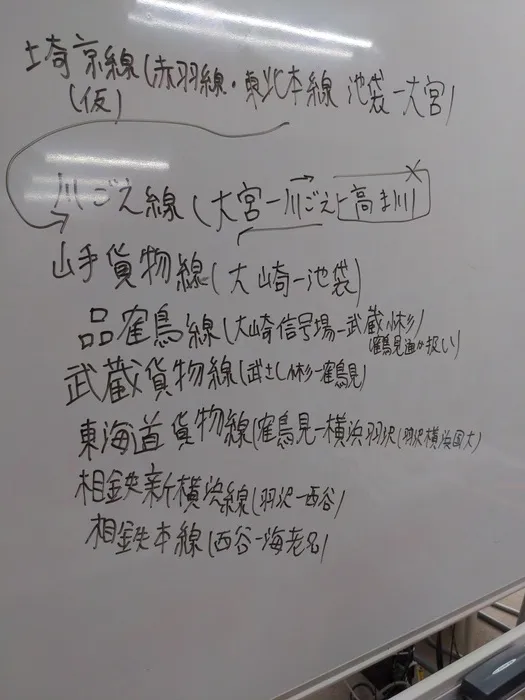 埼京線(赤羽線・東北本線 池袋ー大宮)
(仮)
川ごえ線(大宮ー川ごえー高ま川)
山手貨物線(大崎ー池袋)
品鶴線(大崎信号場ー武蔵小杉)
(鶴見通か扱い)
武蔵貨物線(武さし小杉ー鶴見)
東海道貨物線(鶴見ー横浜羽沢(羽沢横浜国大)
相鉄新横浜線(羽沢ー西谷)
相鉄本線(西谷ー海老名)